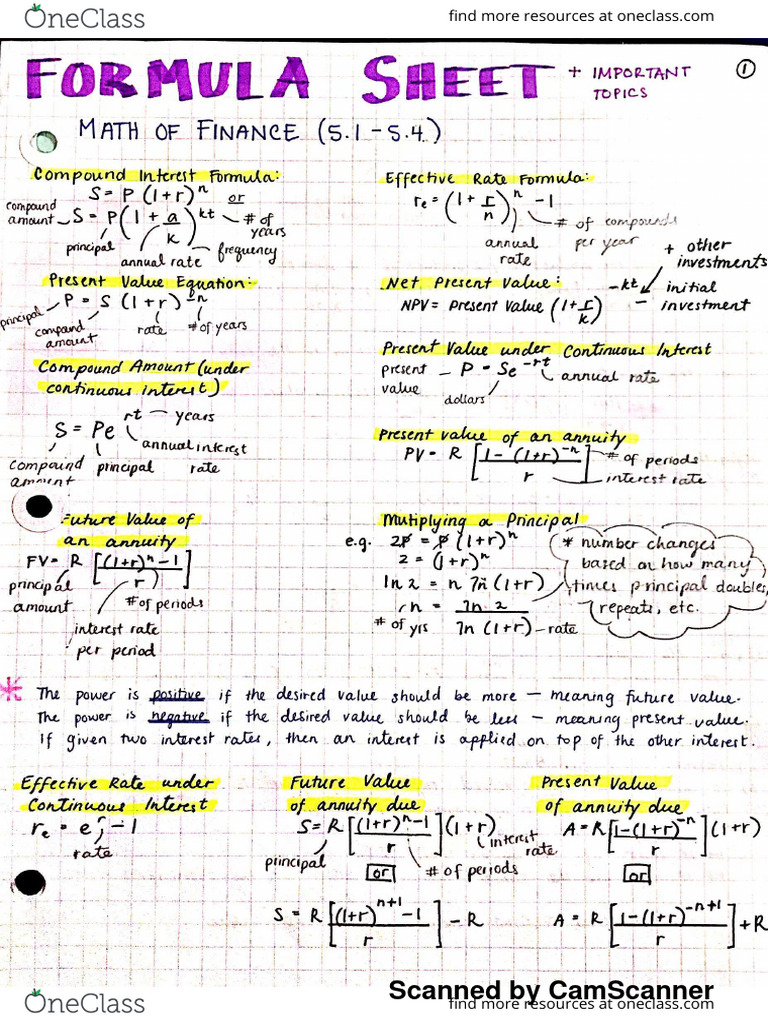 OneClass
find more resources at oneclass.com
FORMULA SHEET + IMPORTANT TOPICS ①
MATH OF FINANCE (5.1-5.4)
Compound Interest Formula:
S = P (1+r)^n or
compound amount
S = P(1 + a/k)^kt
# of years
principal
annual rate
frequency
Present Value Equation:
P = S (1+r)^-n
principal
compound amount
rate
# of years
Compound Amount (under
continuous interest)
S = Pe^rt
years
annual interest rate
compound amount
principal
Future Value of
an annuity
FV = R [(1+r)^n - 1 / r]
principal amount
# of periods
interest rate
per period
Effective Rate Formula:
re = (1 + r/n)^n - 1
# of compounds
per year
annual
rate
Net Present Value:
NPV = Present Value (1+r/k)^-kt
+ other
investments
- initial
investment
Present Value under Continuous Interest
present value
P = Se^-rt
annual rate
dollars
Present value of an annuity
PV = R [1-(1+r)^-n / r]
# of periods
interest rate
Multiplying a Principal
e.g. 2P = P (1+r)^n
2 = (1+r)^n
ln 2 = n ln (1+r)
n = ln 2 / ln (1+r)
# of yrs
rate
* number changes
based on how many
times principal doubles,
repeats, etc.
* The power is positive if the desired value should be more — meaning future value.
The power is negative if the desired value should be less — meaning present value.
If given two interest rates, then an interest is applied on top of the other interest.
Effective Rate under
Continuous Interest
re = e^r - 1
rate
Future Value
of annuity due
S = R [(1+r)^n - 1 / r] (1+r)
interest rate
principal
# of periods
or
S = R [(1+r)^n+1 - 1 / r] - R
Present Value
of annuity due
A = R [1-(1+r)^-n / r] (1+r)
or
A = R [1-(1+r)^-n+1 / r] + R
Scanned by CamScanner
OneClass
find more resources at oneclass.com